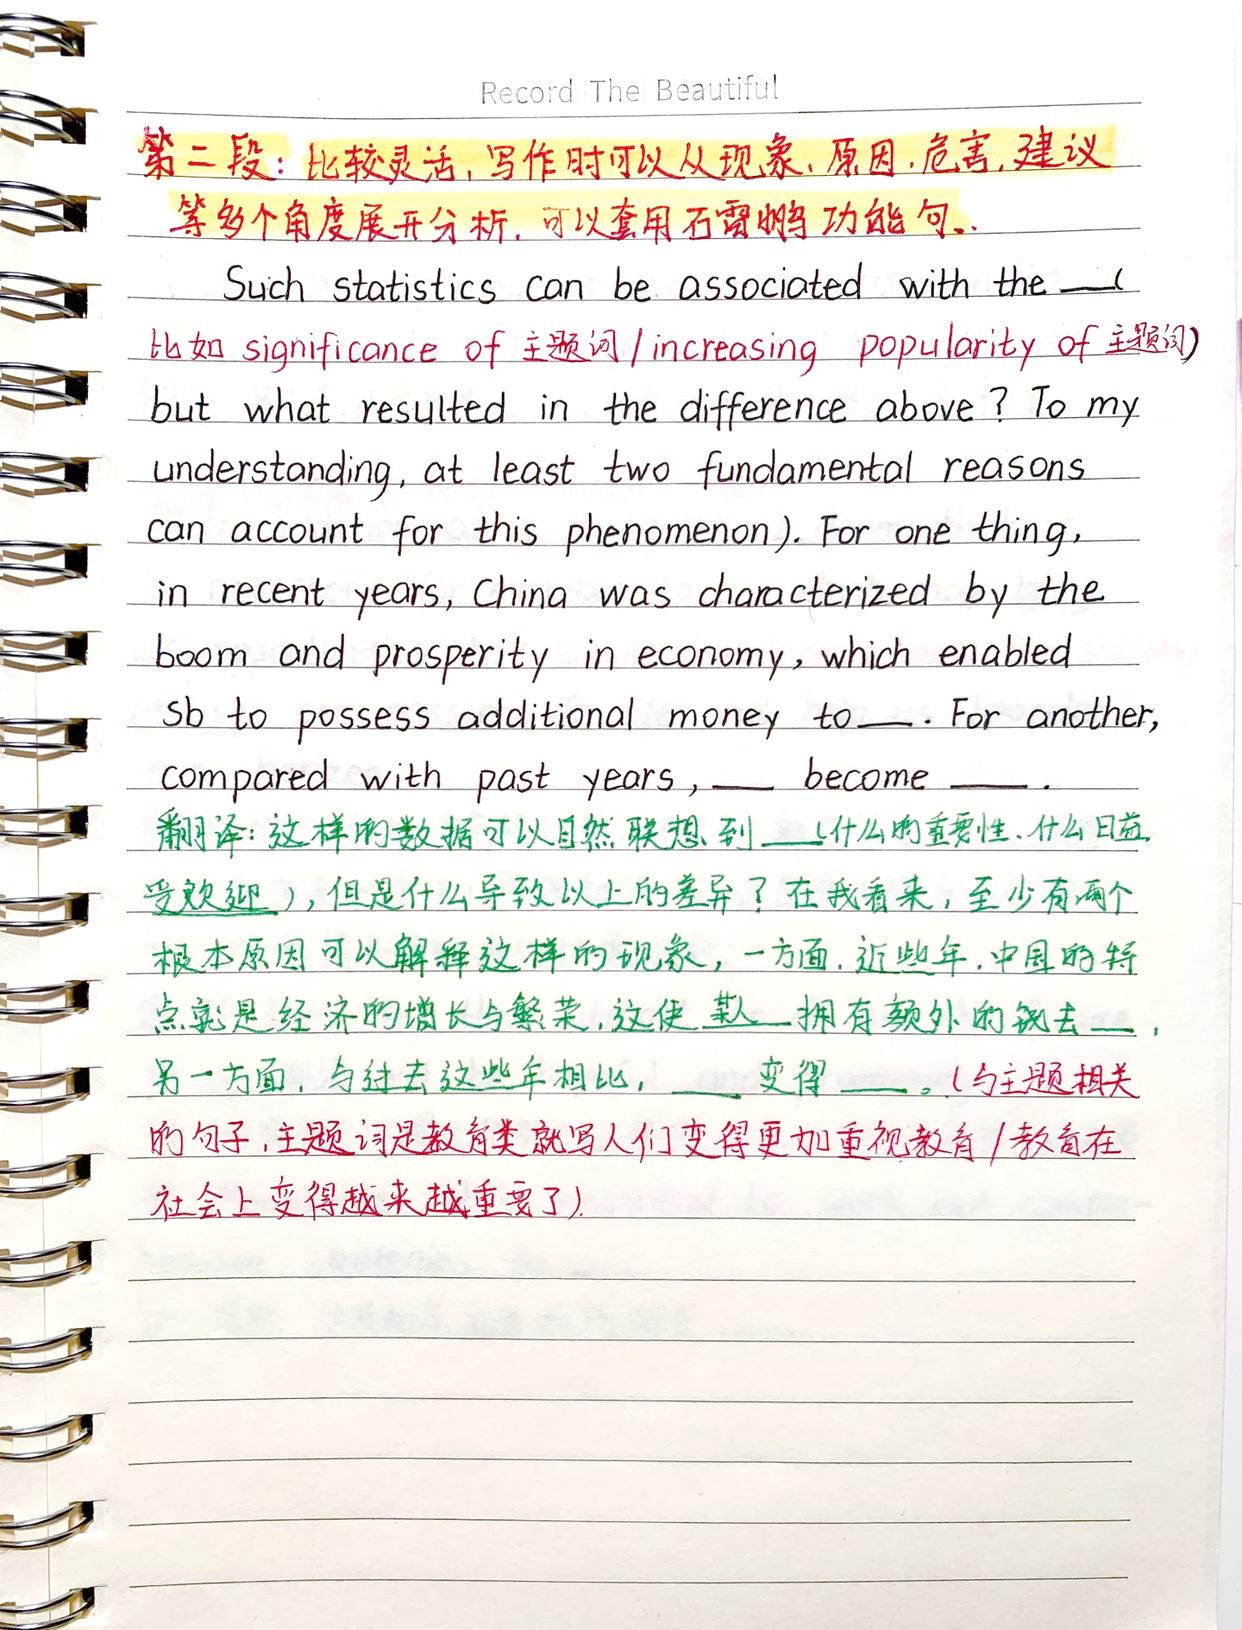 Record The Beautiful
第二段：比较灵活，写作时可以从现象、原因、危害、建议
等多个角度展开分析，可以套用石雷鹏功能句。
Such statistics can be associated with the ___(
比如 significance of 主题词 / increasing popularity of 主题词)
but what resulted in the difference above? To my
understanding, at least two fundamental reasons
can account for this phenomenon). For one thing,
in recent years, China was characterized by the
boom and prosperity in economy, which enabled
sb to possess additional money to ___. For another,
compared with past years, ___ become ___.
翻译：这样的数据可以自然联想到___(什么的重要性、什么日益
受欢迎），但是什么导致以上的差异？在我看来，至少有两个
根本原因可以解释这样的现象，一方面，近些年，中国的特
点就是经济的增长与繁荣，这使某人___拥有额外的钱去___，
另一方面，与过去这些年相比，___变得___。（与主题相关
的句子，主题词是教育类就写人们变得更加重视教育/教育在
社会上变得越来越重要了）